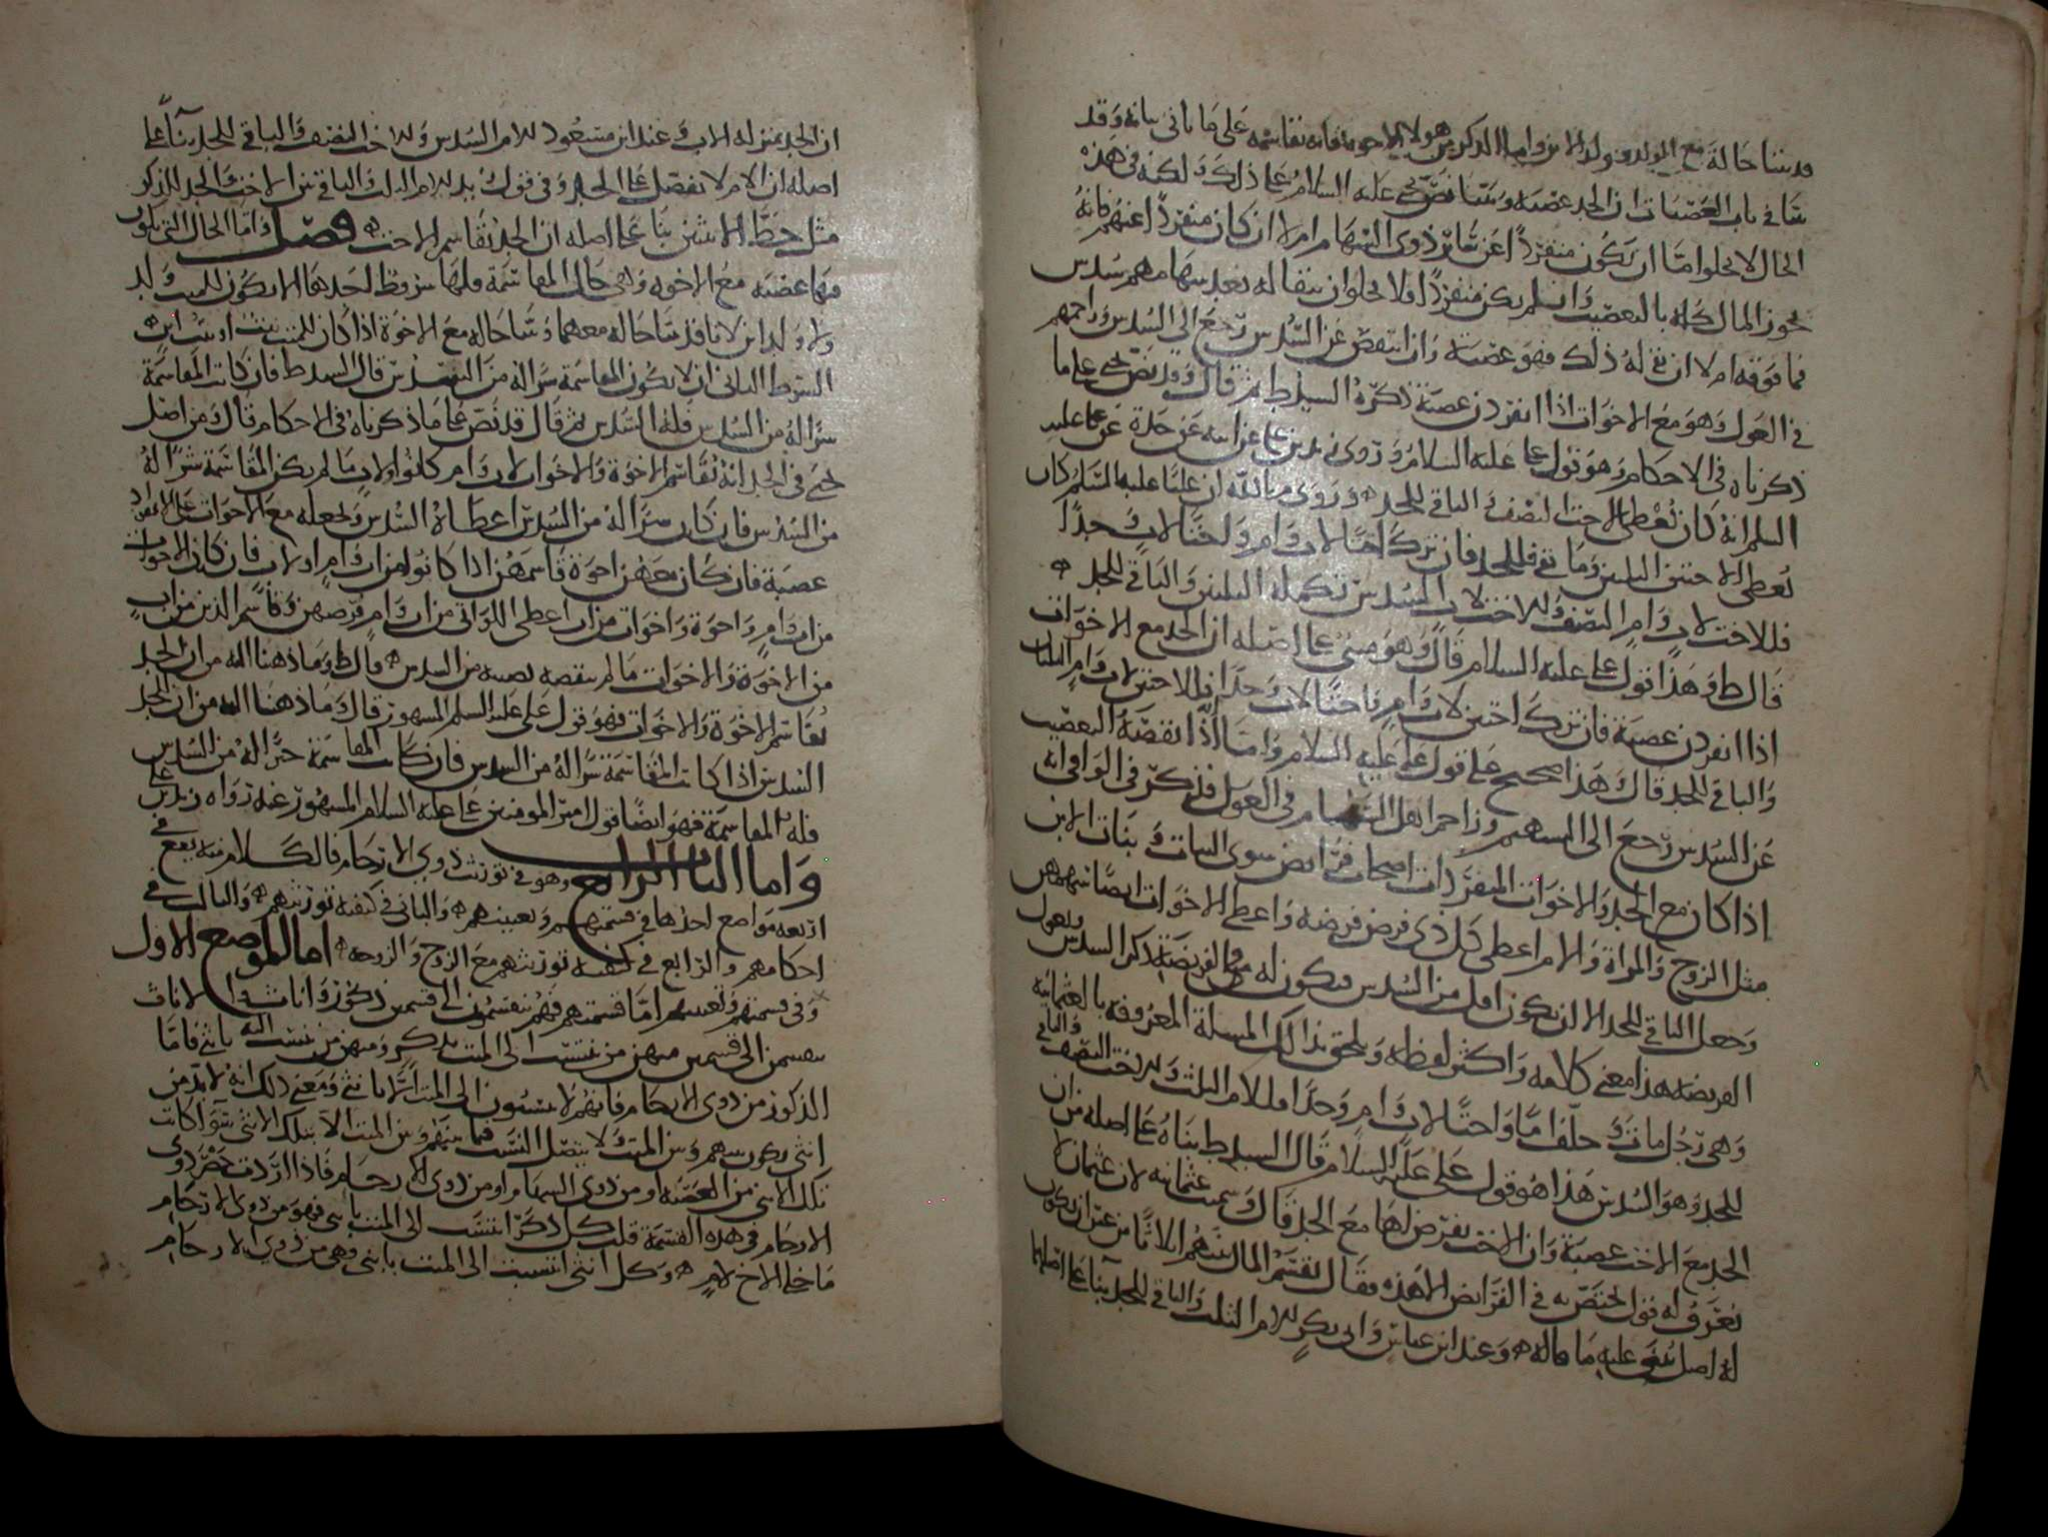 قد بينا حالة مع الولد وولد الابن واما الذكر من هولاء الاخوة فانه نقاسمه على ما ياتي بيانه وقد
بينا في باب العصبات ان الجد عصبة وبينا نص يحيى عليه السلام على ذلك ولكنه في هذه
الحال لا يخلوا اما ان يكون منفردًا عن سائر ذوي السهام ام لا ان كان منفردًا عنهم فانه
يحوز المال كله بالتعصيب وان لم يكن منفردًا فلا يخلوا ان يبقا له بعد سهامهم سدس
فما فوقه ام لا ان بقي له ذلك فهو عصبة وان انتقص عن السدس رجع الى السدس وزاحمهم
في العول وهو مع الاخوات اذا انفردن عصبة ذكره السيد ط ثم قال وقد نص يحيى على ما
ذكرناه في الاحكام وهو قول علي عليه السلام وروى زيد بن علي عن ابيه عن جده عن علي عليه
السلم انه كان يعطي الاخت النصف والباقي للجد وروى عبدالله ان عليًا عليه السلم كان
يعطي الاختين الثلثين وما بقي فللجد فان ترك اختًا لاب وام واختًا لاب وجدًا
فللاخت لاب وام النصف وللاخت لاب السدس تكملة الثلثين والباقي للجد
قال ط وهذا قول علي عليه السلام قال وهو مبني على اصله ان الجد مع الاخوات
اذا انفردن عصبة فان ترك اختين لاب وام واختًا لاب وجدا فللاختين لاب وام الثلثان
والباقي للجد قال هذا صحيح على قول علي عليه السلام واما اذا نقصه التعصيب
عن السدس رجع الى السهم وزاحم اهل السهام في العول فذكر في الوافي انه
اذا كان مع الجد والاخوات المنفردات اصحاب فرايض سوى البنات وبنات الابن
مثل الزوج والمراة والام اعطى كل ذي فرض فرضه واعطى الاخوات ايضا سهمهن
وجعل الباقي للجد الا ان يكون اقل من السدس فيكون له في الفريضة ذكر السدس ويعول
الفريضة هذا معنى كلامه واكثر لفظه ويلحق بذلك المسلة المعروفة بالعثمانية
وهي رجل مات وخلف اما واختًا لاب وام وجدًا فللام الثلث وللاخت النصف والباقي
للجد وهو السدس هذا هو قول علي عليه السلام قال السيد ط بناه على اصله من ان
الجد مع الاخت عصبة وان الاخت يفرض لها مع الجد قال وسميت عثمانية لان عثمان لا
يعرف له قول اختص به في الفرايض الا هذه فقال يقسم المال بينهم اثلاثا من غير ان يكون
له اصل يبني عليه ما قاله وعند ابن عباس وابي بكر للام الثلث والباقي للجد بناءً على اصلهما
ان الجد بمنزلة الاب وعند ابن مسعود للام السدس وللاخت النصف والباقي للجد بناءً على
اصله ان الام لا تفضل على الجد وفي قول زيد للام الثلث والباقي بين الاخت والجد للذكر
مثل حظ الانثيين بنا على اصله ان الجد يقاسم الاخت فصل واما الحال التي يكون
فيها عصبة مع الاخوة وهي حال المقاسمة فلها شروط احدها الا يكون للميت ولد
ولا ولد ابن لانا قد بينا حاله معهما وبينا حاله مع الاخوة اذا كان للميت بنت او بنت ابن
الشرط الثاني ان لا يكون المقاسمة شرًا له من السدس قال السيد ط فان كانت المقاسمة
شرًا له من السدس فله السدس ثم قال قد نص على ما ذكرناه في الاحكام قال ومن اصل
يحيى في الجد انه يقاسم الاخوة والاخوات لاب وام كانوا او لاب ما لم يكن المقاسمة شرًا له
من السدس فان كان شرًا له من السدس اعطاه السدس ويجعله مع الاخوات على الانفراد
عصبة فان كان معهن اخوة قاسمهن اذا كانوا من اب وام او لاب فان كان الاخوات
من اب وام واخوة واخوات من اب اعطى اللواتي من اب وام فرضهن وقاسم الذين من اب
من الاخوة والاخوات ما لم ينقصه نصيبه من السدس قال ط وما ذهبنا اليه من ان الجد
يقاسم الاخوة والاخوات فهو قول علي عليه السلم المشهور قال وما ذهبنا اليه من ان للجد
السدس اذا كانت المقاسمة شرًا له من السدس فان كانت المقاسمة خيرًا له من السدس
فله المقاسمة فهو ايضًا قول امير المومنين علي عليه السلام المشهور عنه رواه زيد بن علي
واما الباب الرابع وهو في توريث ذوي الارحام فالكلام منه يقع في
اربعة مواضع احدها في قسمتهم وتعيينهم والثاني في كيفية توريثهم والثالث في
احكامهم والرابع في كيفية توريثهم مع الزوج والزوجة اما الموضع الاول
وفي قسمتهم وتعيينهم اما قسمتهم فهم ينقسمون الى قسمين ذكور واناث والاناث
ينقسمن الى قسمين منهن من ينتسب الى الميت بذكر ومنهن من ينتسب اليه بانثى فاما
الذكور من ذوي الارحام فانهم لا ينتسبون الى الميت الا بانثى ومعنى ذلك انه لا بد من
انثى يكون بينهم وبين الميت ولا يتصل النسب فيما بينهم وبين الميت الا بتلك الانثى سوا كانت
تلك الانثى من العصبة او من ذوي السهام او من ذوي الارحام فاذا اردت حصر ذوي
الارحام في هذه القسمة قلت كل ذكر انتسب الى الميت بانثى فهو من ذوي الارحام
ما خلى الاخ لام وكل انثى انتسبت الى الميت بانثى وهي من ذوي الارحام